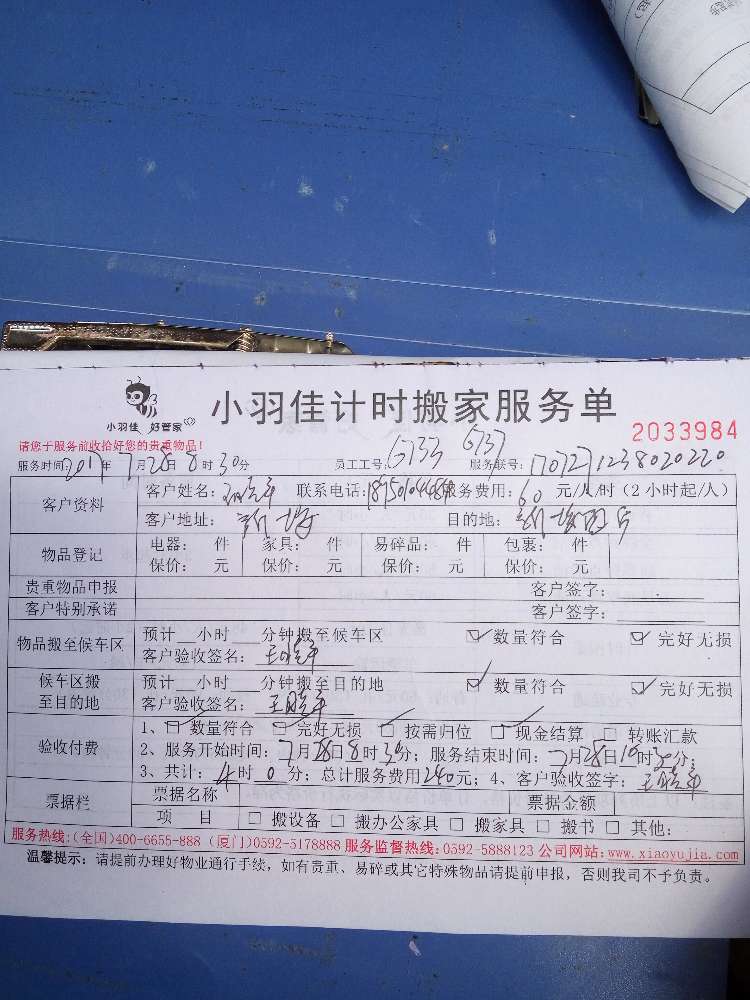 小羽佳 好管家
小羽佳计时搬家服务单
2033984
请您于服务前收拾好您的贵重物品!
服务时间:2017年7月28日8时30分 员工工号:6733 6737 服务联号:1707271238020220
客户资料
客户姓名: 联系电话: 服务费用:60元/人/时(2小时起/人)
客户地址: 目的地:
物品登记
电器: 件 家具: 件 易碎品: 件 包裹: 件
保价: 元 保价: 元 保价: 元 保价: 元
贵重物品申报 客户签字:
客户特别承诺 客户签字:
物品搬至候车区
预计__小时__分钟搬至候车区 ☑数量符合 ☑完好无损
客户验收签名:王晓军
候车区搬至目的地
预计__小时__分钟搬至目的地 ☑数量符合 ☑完好无损
客户验收签名:王晓军
验收付费
1、☑数量符合 ☑完好无损 ☑按需归位 ☑现金结算 □转账汇款
2、服务开始时间:7月28日8时30分;服务结束时间:7月28日10时30分;
3、共计:4时0分;总计服务费用240元;4、客户验收签字:王晓军
票据栏
票据名称 票据金额
项 目 □搬设备 □搬办公家具 □搬家具 □搬书 □其他:
服务热线:(全国)400-6655-888 (厦门)0592-5178888 服务监督热线:0592-5888123 公司网站:www.xiaoyujia.com
温馨提示:请提前办理好物业通行手续,如有贵重、易碎或其它特殊物品请提前申报,否则我司不予负责。